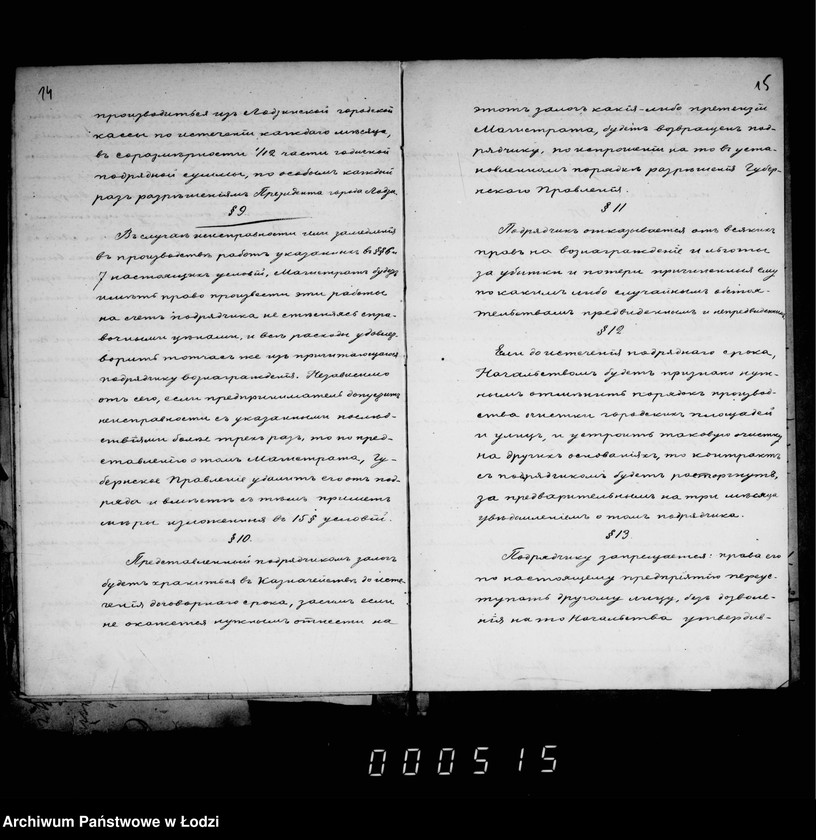 14
производиться изъ Лодзинской городской
кассы по истеченіи каждаго мѣсяца,
въ соразмѣрности 1/12 части годичной
подрядной суммы, по особымъ каждый
разъ разрѣшеніямъ Президента города Лодзи.
§ 9.
Въ случаѣ неисправности или замедленія
въ производствѣ работъ указанныхъ въ §§ 6 и
7 настоящихъ условій, Магистратъ будетъ
имѣть право произвести эти работы
на счетъ подрядчика не стѣсняясь спра-
вочными цѣнами, и всѣ расходы удовлет-
ворить тотчасъ же изъ причитающагося
подрядчику вознагражденія. Независимо
отъ сего, если предприниматель допуститъ
неисправности съ указанными послѣд-
ствіями болѣе трехъ разъ, то по пред-
ставленію о томъ Магистрата, Гу-
бернское Правленіе удалитъ его отъ под-
ряда и вмѣстѣ съ тѣмъ приметъ
мѣры изложенныя въ 15 § условій.
§ 10.
Представленный подрядчикомъ залогъ
будетъ храниться въ Казначействѣ до исте-
ченія договорнаго срока, засимъ если
не окажется нужнымъ отнести на
15
этотъ залогъ какія-либо претензіи
Магистрата, будетъ возвращенъ под-
рядчику, по испрошеніи на то въ уста-
новленномъ порядкѣ разрѣшенія Губер-
нскаго Правленія.
§ 11
Подрядчикъ отказывается отъ всякихъ
правъ на вознагражденіе и льготы
за убытки и потери причиненныя ему
по какимъ либо случайнымъ обстоя-
тельствамъ предвидѣннымъ и непредвидѣннымъ
§ 12
Если до истеченія подряднаго срока,
Начальствомъ будетъ признано нуж-
нымъ отмѣнить порядокъ производ-
ства чистки городскихъ площадей
и улицъ, и устроить таковую очистку
на другихъ основаніяхъ, то контрактъ
съ подрядчикомъ будетъ расторгнутъ,
за предварительнымъ на три мѣсяца
увѣдомленіемъ о томъ подрядчика.
§ 13
Подрядчику запрещается: права его
по настоящему предпріятію переус-
тупать другому лицу, безъ дозволе-
нія на то Начальства утвердив-
000515
Archiwum Państwowe w Łodzi